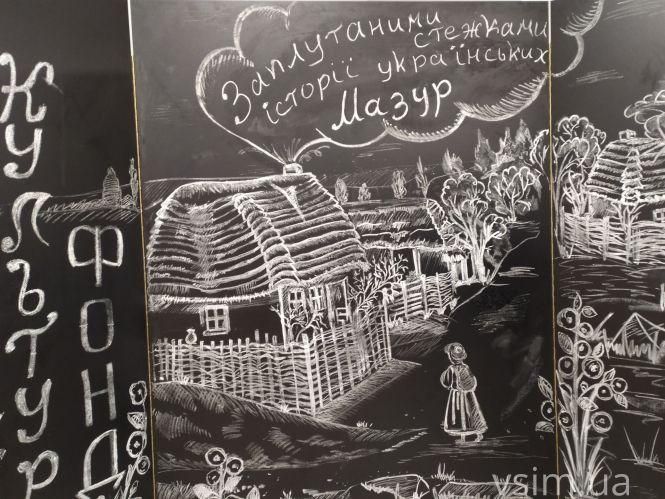 Заплутаними
стежками
історії українських
Мазур
КУЛЬТУР
ФОНД
vsim.ua